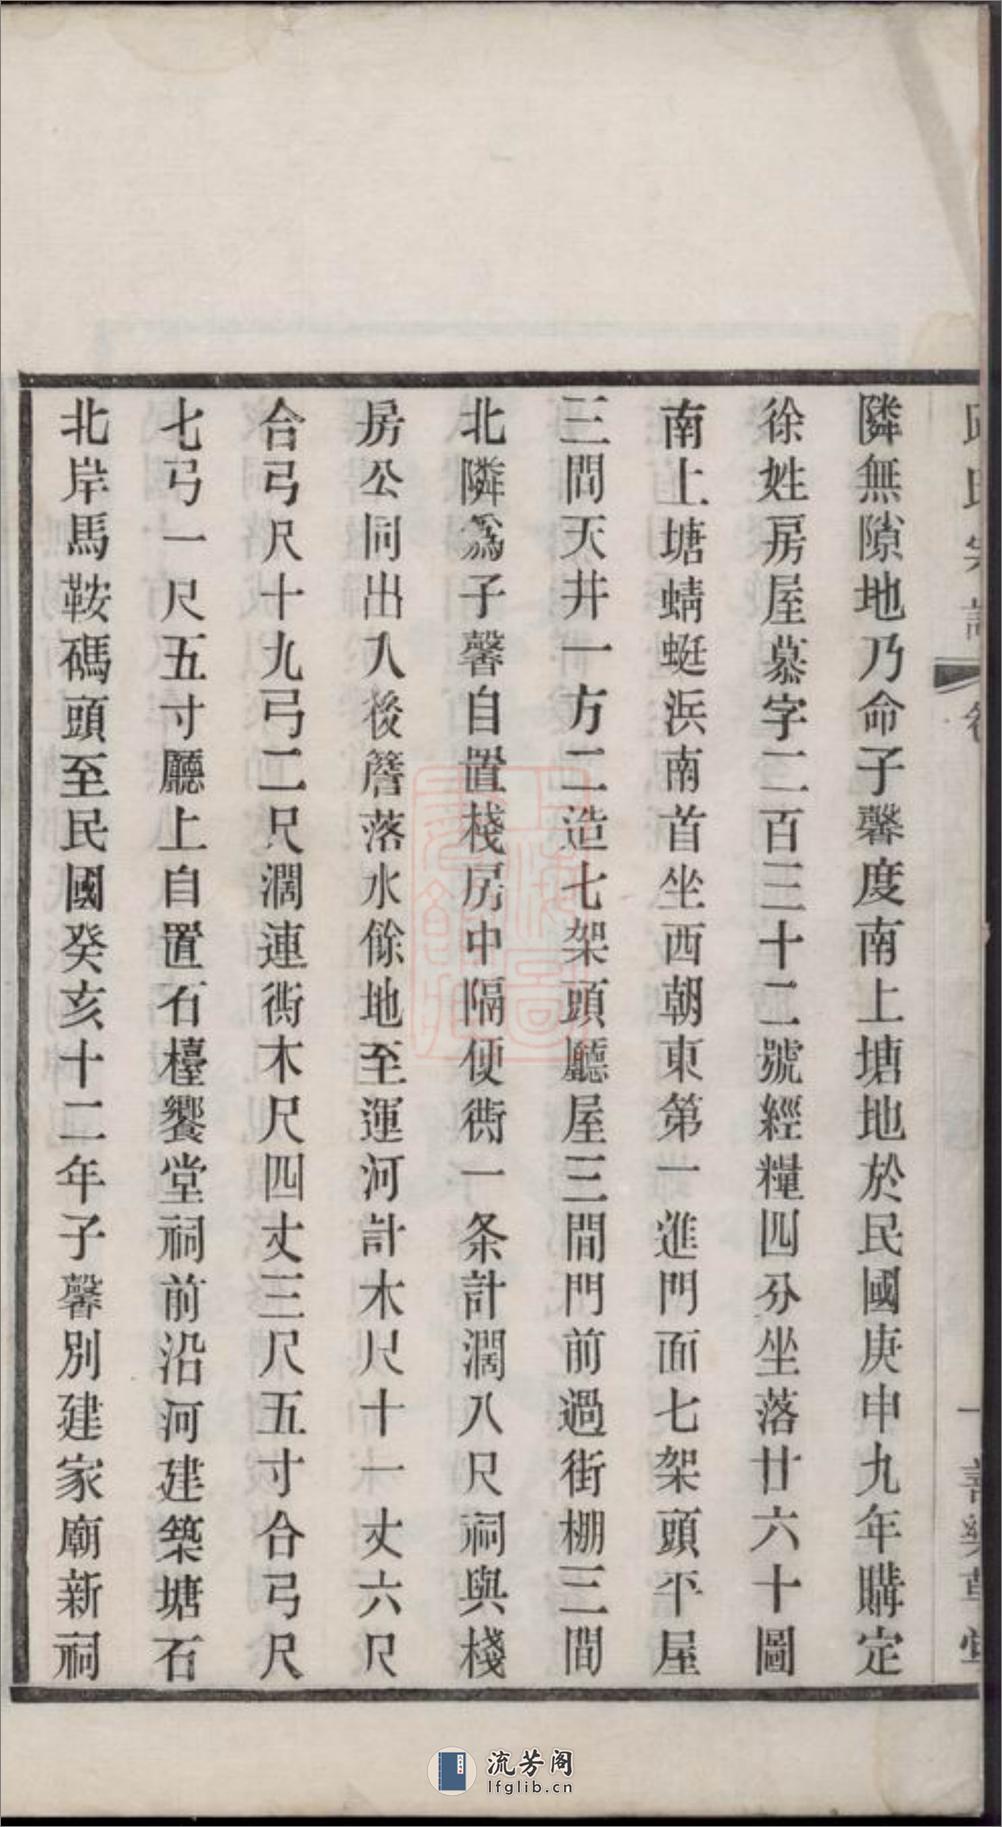 隣無隙地乃命子馨度南上塘地於民國庚申九年購定
徐姓房屋慕字二百三十二號經糧四分坐落廿六十圖
南上塘蜻蜓浜南首坐西朝東第一進門面七架頭平屋
三間天井一方二造七架頭廳屋三間門前過街棚三間
北隣爲子馨自置棧房中隔便衖一条計濶八尺祠與棧
房公同出入後簷落水餘地至運河計木尺十一丈六尺
合弓尺十九弓二尺濶連衖木尺四丈三尺五寸合弓尺
七弓一尺五寸廳上自置石檯饗堂祠前沿河建築塘石
北岸馬鞍碼頭至民國癸亥十二年子馨別建家廟新祠
流芳阁
lfglib.cn